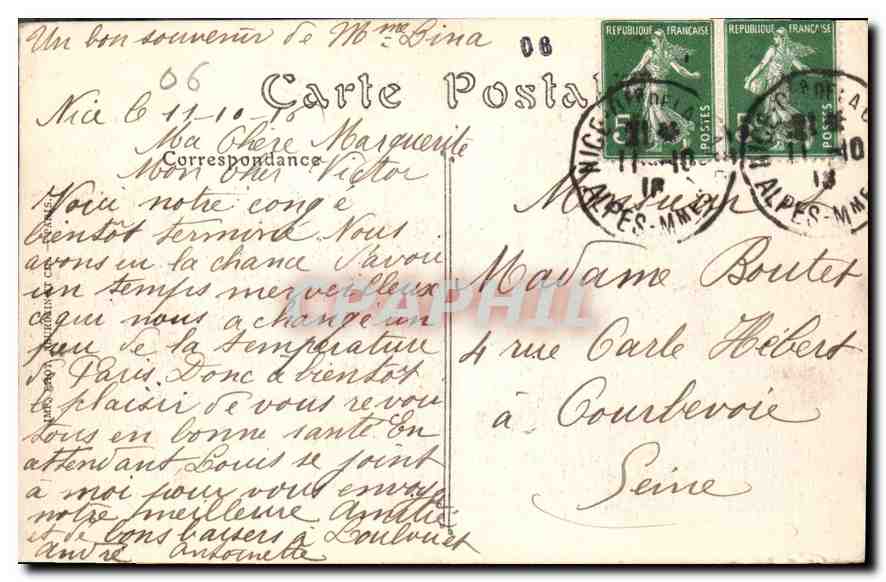 Un bon souvenir de Mme Lina
06
06
REPUBLIQUE FRANÇAISE
POSTES
5
REPUBLIQUE FRANÇAISE
POSTES
5
NICE
11 - 10
ALPES-MMES
NICE
11 - 10
13
ALPES-MMES
Carte Postale
Nice le 11-10-13
Ma Chère Marguerite
Correspondance
Mon cher Victor
Voici notre congé
bientot terminé Nous
avons eu la chance d'avoir
un temps merveilleux
ce qui nous a changé un
peu de la température
de Paris. Donc a bientot
le plaisir de vous revoir
tous en bonne santé En
attendant, Louis se joint
à moi pour vous envoyer
notre meilleure Amitié
et de bons baisers à Loulouet
André Antoinette
Monsieur
Madame Boutet
4 rue Carle Hébert
à Courbevoie
Seine
CPAPHIL